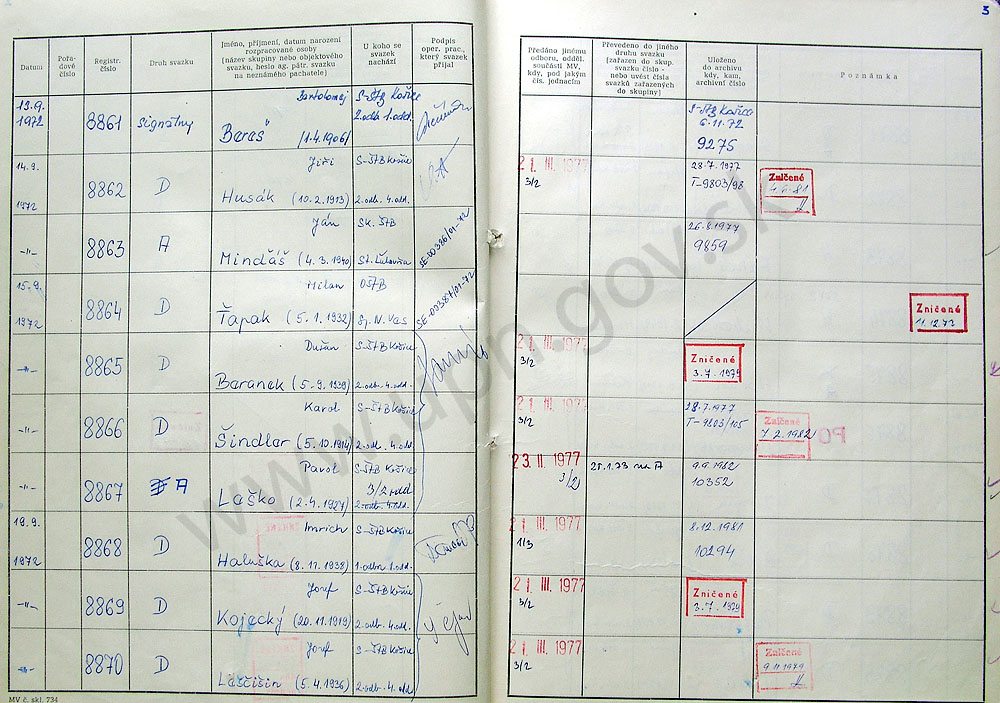 3
Datum
Pořa-
dové
číslo
Registr.
číslo
Druh svazku
Jméno, příjmení, datum narození
rozpracované osoby
(název skupiny nebo objektového
svazku, heslo ag. pátr. svazku
na neznámého pachatele)
U koho se
svazek
nachází
Podpis
oper. prac.,
který svazek
přijal
Předáno jinému
odboru, odděl.
součásti MV,
kdy, pod jakým
čís. jednacím
Převedeno do jiného
druhu svazku
[zařazen do skup.
svazku číslo -
nebo uvést čísla
svazků zařazených
do skupiny]
Uloženo
do archivu
kdy, kam,
archivní číslo
Poznámka
13.9.
1972
8861
signálny
Bartolomej
Bereš (1.4.1906)
S-ŠtB Košice
2.odb 1.odd.
S-ŠtB Košice
6.11.72
9275
14.9.
1972
8862
D
Jiří
Husák (10.2.1913)
S-ŠtB Košice
2.odb. 4.odd.
21. III. 1977
3/2
28.7.1977
T-9803/98
Zničené
-"-
8863
A
Ján
Mindáš (4.3.1940)
Sk. ŠtB
St. Ľubovňa
SE-00386/01-72
26.8.1977
9859
15.9.
1972
8864
D
Milan
Ťapak (5.1.1932)
OŠtB
Sp. N. Ves
SE-00387/01-72
Zničené
11.12.73
-"-
8865
D
Dušan
Beranek (5.9.1939)
S-ŠtB Košice
2.odb. 4.odd.
21. III. 1977
3/2
Zničené
3.7.1979
-"-
8866
D
Karol
Šindler (5.10.1914)
S-ŠtB Košice
2.odb. 4.odd.
21. III. 1977
3/2
28.7.1977
T-9803/105
Zničené
7 2.1982
-"-
8867
A
Pavol
Laško (2.4.1927)
S-ŠtB Košice
3/2 odd
2.odb. 4.odd.
23. II. 1977
3/2
25.1.73 na A
10352
19.9.
1972
8868
D
Imrich
Haluška (8.11.1938)
S-ŠtB Košice
1.odbor 1.odd.
21. III. 1977
1/3
8.12.1981
10294
-"-
8869
D
Jozef
Kojecký (20.11.1919)
S-ŠtB Košice
2.odb. 4.odd.
21. III. 1977
3/2
Zničené
3.7.1979
-"-
8870
D
Jozef
Laščišin (5.4.1936)
S-ŠtB Košice
2.odb. 4.odd.
21. III. 1977
3/2
Zničené
9.11.1979
MV č. skl. 734
www.upn.gov.sk